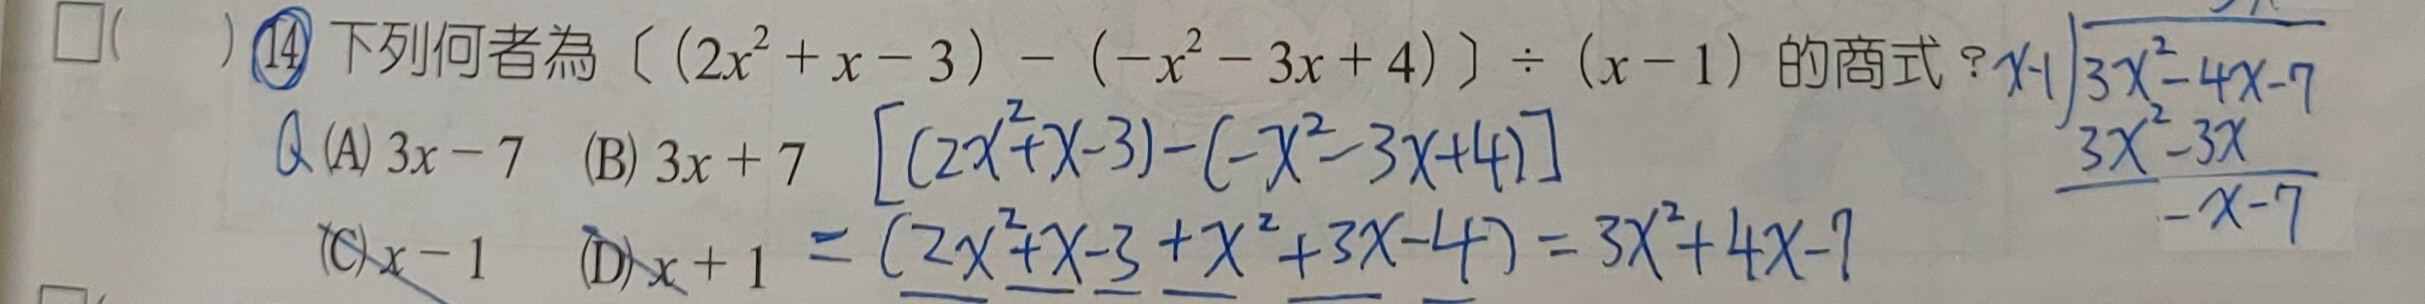 □(　　) 14 下列何者為〔(2x²+x−3)−(−x²−3x+4)〕÷(x−1)的商式？
Q (A) 3x−7 (B) 3x+7
(C) x−1 (D) x+1
[(2x²+x-3)-(-x²-3x+4)]
=(2x²+x-3+x²+3x-4)=3x²+4x-7
x-1)3x²-4x-7
3x²-3x
-x-7